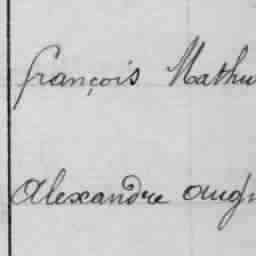 françois Mathu
Alexandre aug